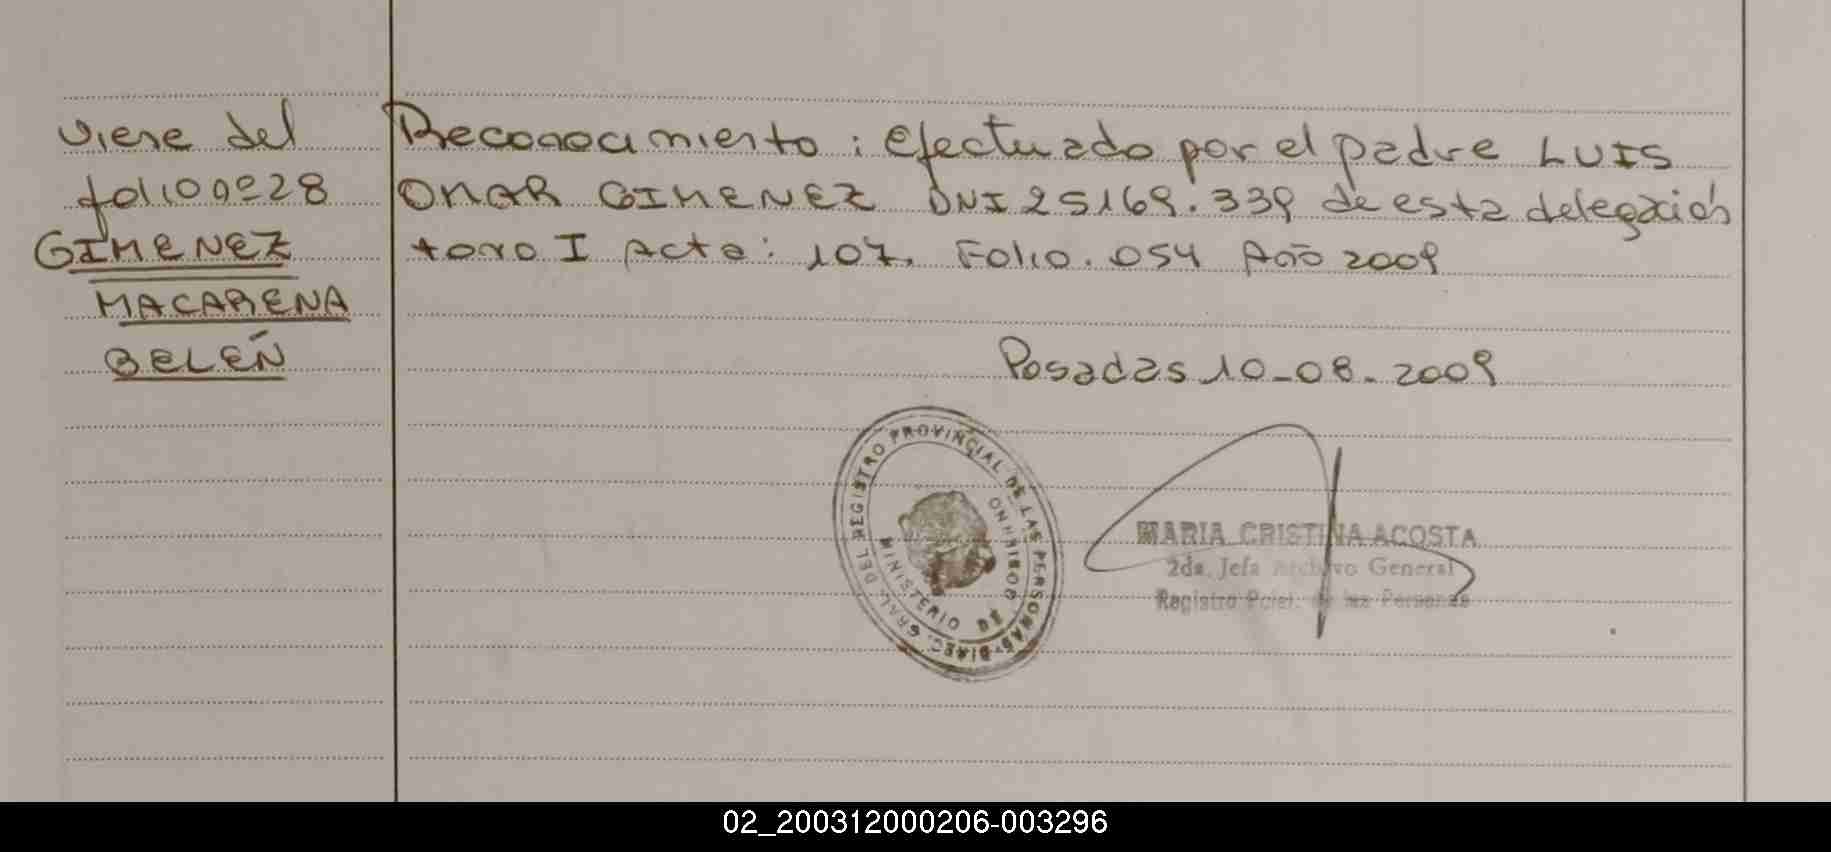 viene del
folio nº 28
GIMENEZ
MACARENA
BELÉN
Reconocimiento: efectuado por el padre LUIS
OMAR GIMENEZ DNI 25169.339 de esta delegación
tomo I Acta: 107. Folio. 054 Año 2009
Posadas 10-08-2009
DIREC. GRAL. DEL REGISTRO PROVINCIAL DE LAS PERSONAS
MINISTERIO DE GOBIERNO
MARIA CRISTINA ACOSTA
2da. Jefa Archivo General
Registro Pcial. de las Personas
02_200312000206-003296